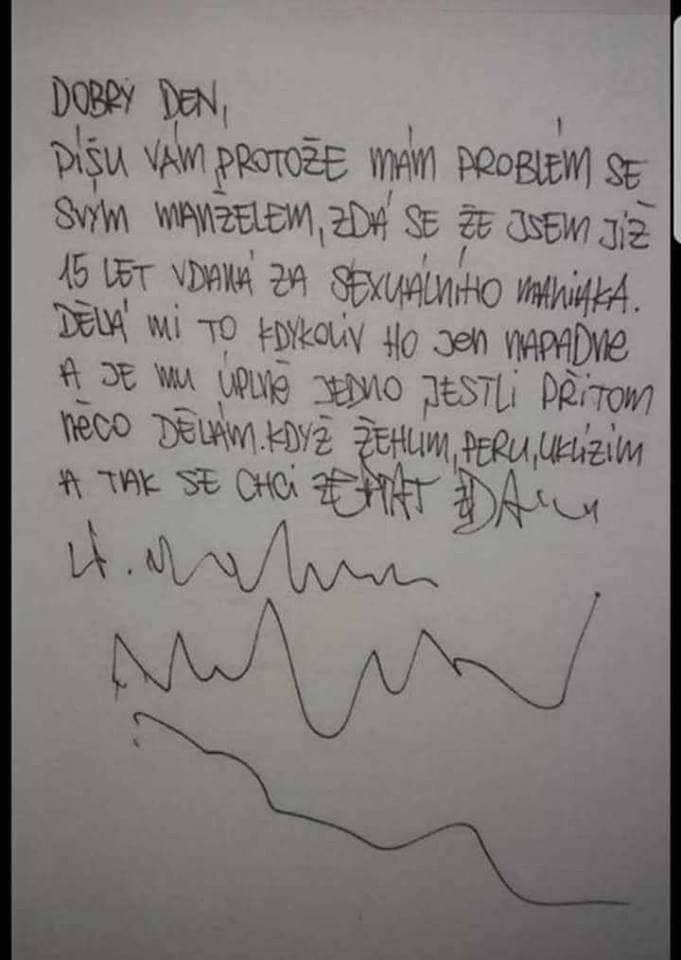 DOBRÝ DEN,
PÍŠU VÁM, PROTOŽE MÁM PROBLÉM SE
SVÝM MANŽELEM, ZDÁ SE ŽE JSEM JIŽ
15 LET VDANÁ ZA SEXUÁLNÍHO MANIAKA.
DĚLÁ MI TO KDYKOLIV HO JEN NAPADNE
A JE MU ÚPLNĚ JEDNO JESTLI PŘITOM
NĚCO DĚLÁM. KDYŽ ŽEHLIM, PERU, UKLÍZIM
A TAK SE CHCI